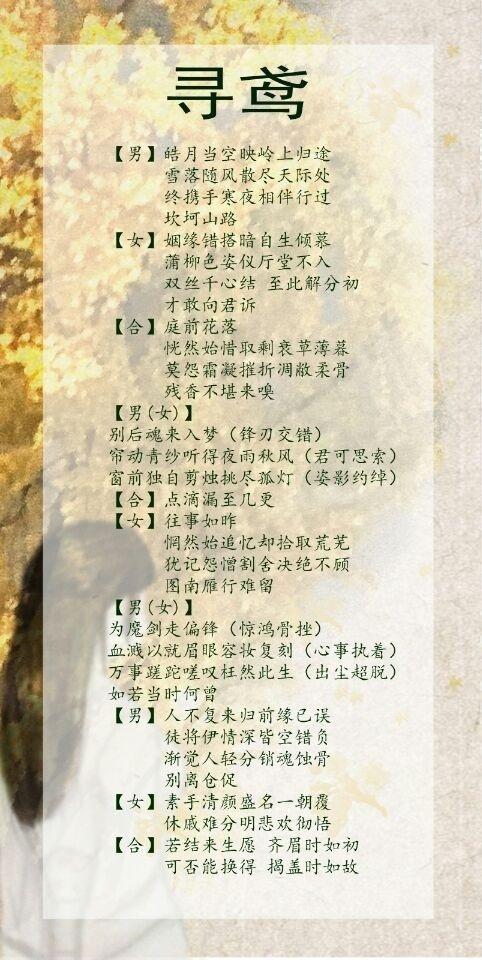 寻鸢
【男】皓月当空映岭上归途
雪落随风散尽天际处
终携手寒夜相伴行过
坎坷山路
【女】姻缘错搭暗自生倾慕
蒲柳色姿仪厅堂不入
双丝千心结 至此解分初
才敢向君诉
【合】庭前花落
恍然始惜取剩衰草薄暮
莫怨霜凝摧折凋敝柔骨
残香不堪来嗅
【男(女)】
别后魂来入梦（锋刃交错）
帘动青纱听得夜雨秋风（君可思索）
窗前独自剪烛挑尽孤灯（姿影约绰）
【合】点滴漏至几更
【女】往事如昨
惘然始追忆却拾取荒芜
犹记怨憎割舍决绝不顾
图南雁行难留
【男(女)】
为魔剑走偏锋（惊鸿骨挫）
血溅以就眉眼容妆复刻（心事执着）
万事蹉跎嗟叹枉然此生（出尘超脱）
如若当时何曾
【男】人不复来归前缘已误
徒将伊情深皆空错负
渐觉人轻分销魂蚀骨
别离仓促
【女】素手清颜盛名一朝覆
休戚难分明悲欢彻悟
【合】若结来生愿 齐眉时如初
可否能换得 揭盖时如故